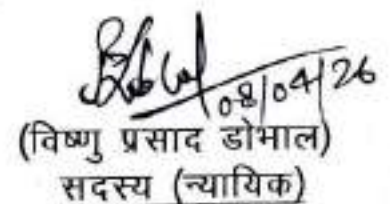 08/04/26
(विष्णु प्रसाद डोभाल)
सदस्य (न्यायिक)